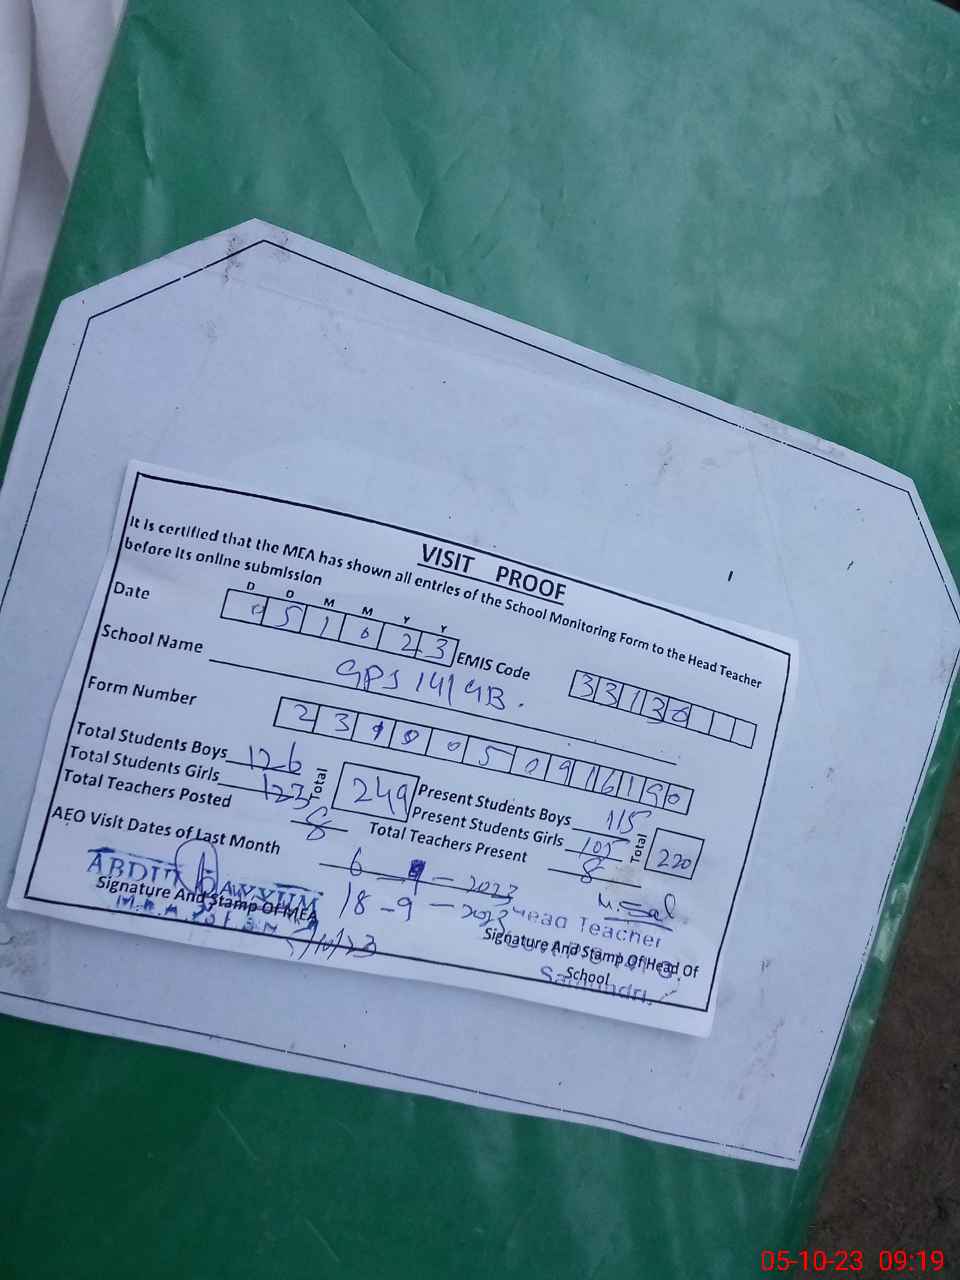 VISIT PROOF
It is certified that the MEA has shown all entries of the School Monitoring Form to the Head Teacher
before its online submission
D D M M Y Y
Date 0 5 1 0 2 3 EMIS Code 3 3 1 3 0
School Name GPS 141 GB.
Form Number
Total Students Boys 126
Total Students Girls 123 Total 249
Total Teachers Posted 8
Present Students Boys 115
Present Students Girls 105 Total 220
Total Teachers Present 8
AEO Visit Dates of Last Month 6 - 9 - 2023
18 - 9 - 2023
ABDUL QAYYUM
Signature And Stamp Of MEA
5/10/23
Head Teacher
Signature And Stamp Of Head Of
School
05-10-23 09:19